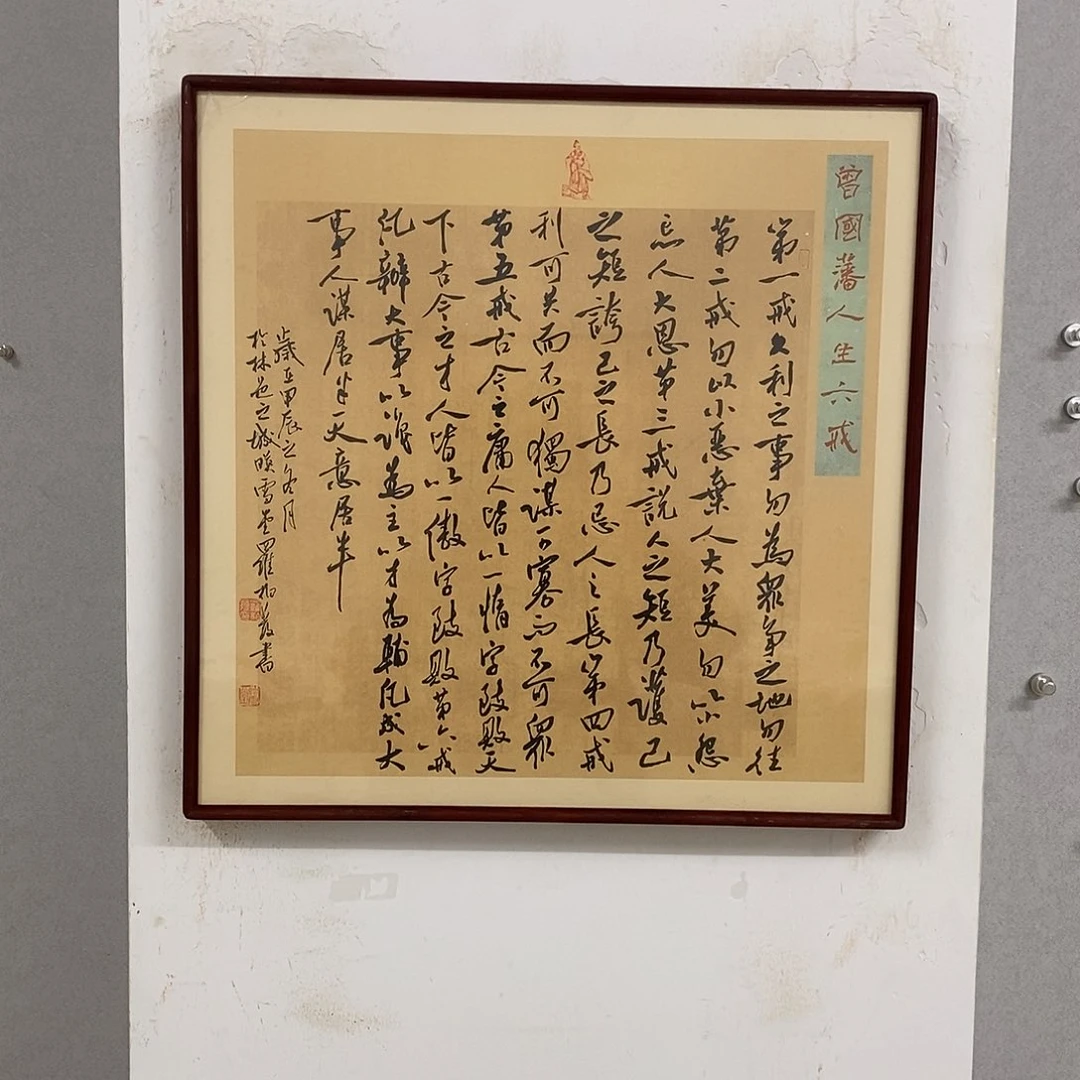 曾國藩人生六戒
第一戒久利之事勿為眾爭之地勿往
第二戒勿以小惡棄人大美勿以小怨
忘人大恩第三戒說人之短乃護己
之短誇己之長乃忌人之長第四戒
利可共而不可獨謀可寡而不可眾
第五戒古今之庸人皆以一惰字致敗天
下古今之才人皆以一傲字致敗第六戒
凡辦大事以識為主以才為輔凡成大
事人謀居半天意居半
歲在甲辰之冬月
於林邑之城暎雪堂羅柏書